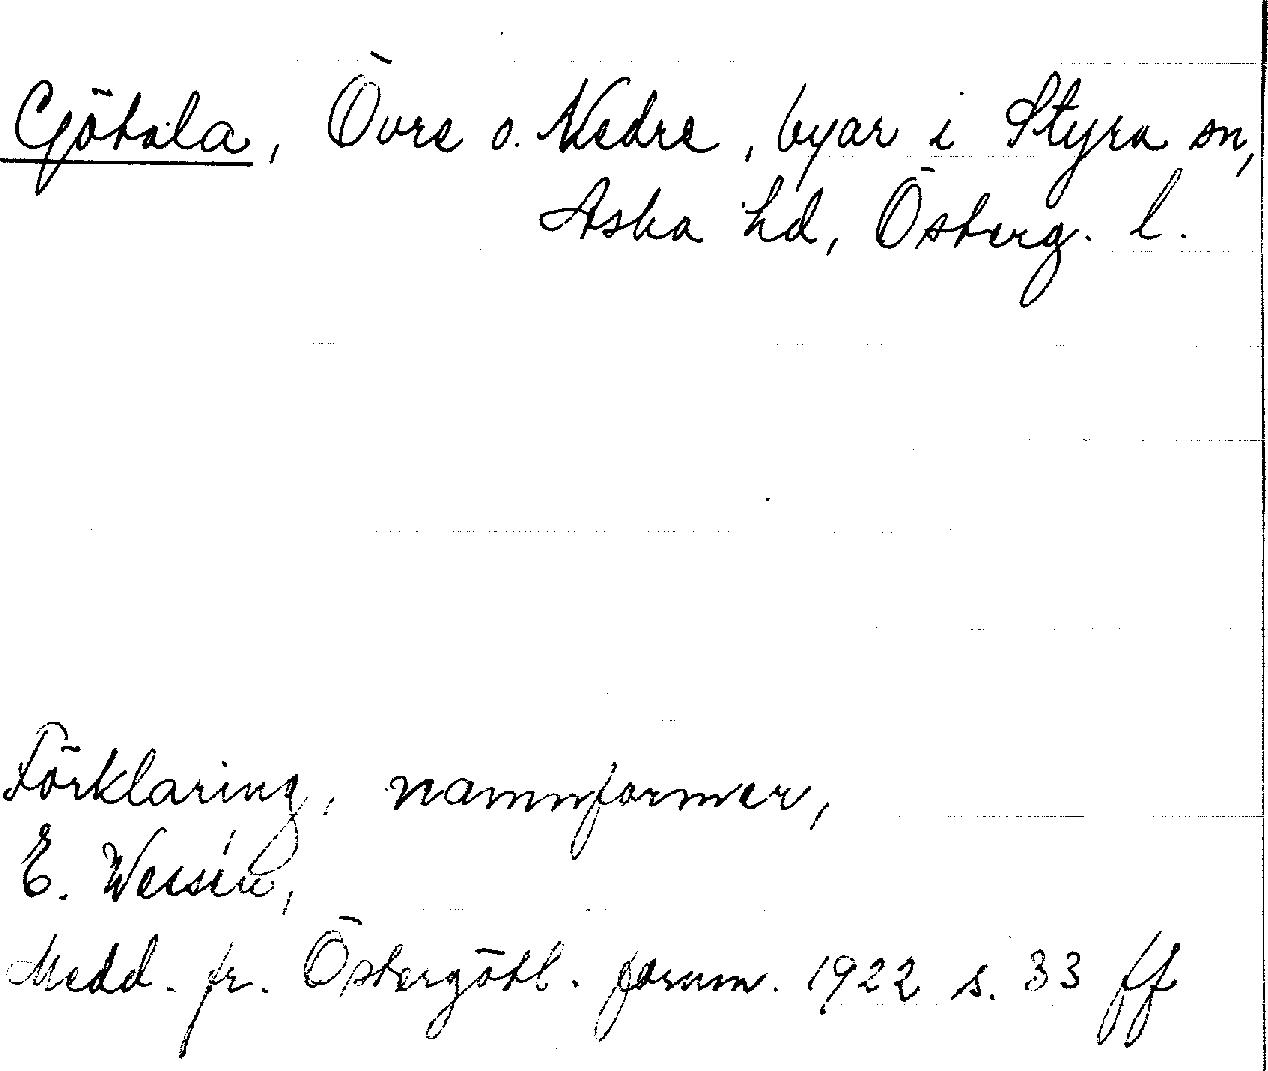 Götala, Övre o. Nedre, byar i Styra sn,
Aska hd, Österg. l.
Förklaring, namnformer,
E. Wessén,
Medd. fr. Östergötl. fornm. 1922 s. 33 ff